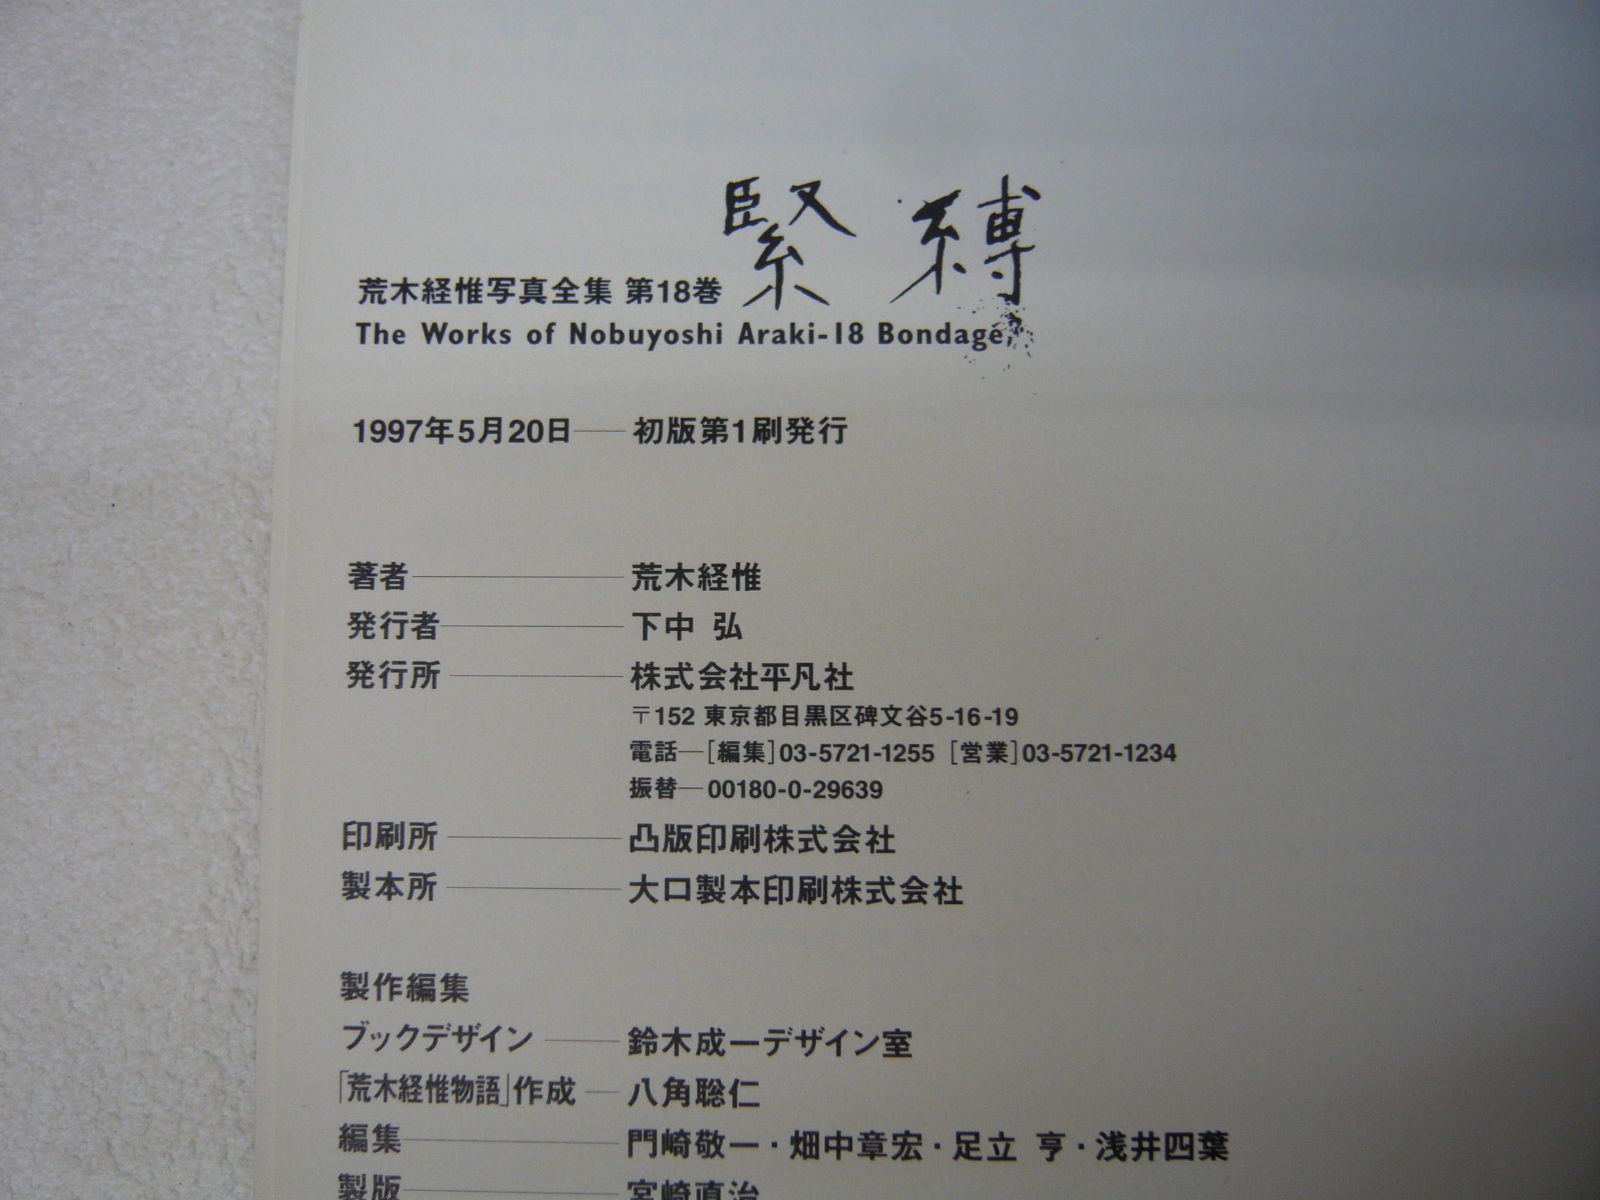 緊縛
荒木経惟写真全集 第18巻
The Works of Nobuyoshi Araki-18 Bondage
1997年5月20日——初版第1刷発行
著者——荒木経惟
発行者——下中 弘
発行所——株式会社平凡社
〒152 東京都目黒区碑文谷5-16-19
電話—[編集]03-5721-1255 [営業]03-5721-1234
振替—00180-0-29639
印刷所——凸版印刷株式会社
製本所——大口製本印刷株式会社
製作編集
ブックデザイン——鈴木成一デザイン室
「荒木経惟物語」作成—八角聡仁
編集——門崎敬一・畑中章宏・足立 亨・浅井四葉
製版——宮崎直治